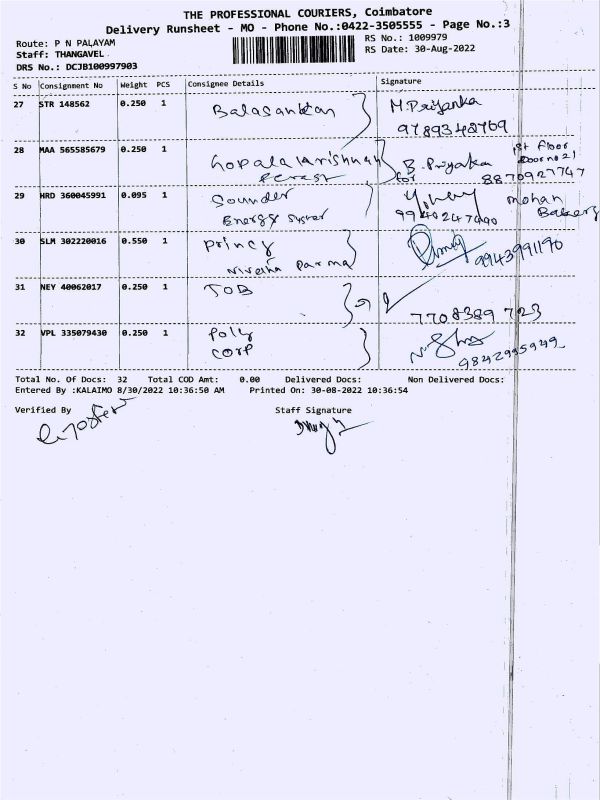 THE PROFESSIONAL COURIERS, Coimbatore
Delivery Runsheet - MO - Phone No.:0422-3505555 - Page No.:3
Route: P N PALAYAM
RS No.: 1009979
Staff: THANGAVEL
RS Date: 30-Aug-2022
DRS No.: DCJB100997903
S No Consignment No Weight PCS Consignee Details Signature
27 STR 148562 0.250 1 M.Priyanka
9789342769
28 MAA 565585679 0.250 1 Gopalakrishnan B. Priyaka 1st Floor
Door no 21
for 8870927747
29 HRD 360045991 0.095 1 Sounder mohan
Energy System 9940247490 Bakery
30 SLM 302220016 0.550 1 Princy 9943991190
Nivetha Parma
31 NEY 40062017 0.250 1 TOB
7708389 723
32 VPL 335079430 0.250 1 Poly
Corp 9842995949
Total No. Of Docs: 32 Total COD Amt: 0.00 Delivered Docs: Non Delivered Docs:
Entered By :KALAIMO 8/30/2022 10:36:50 AM Printed On: 30-08-2022 10:36:54
Verified By Staff Signature